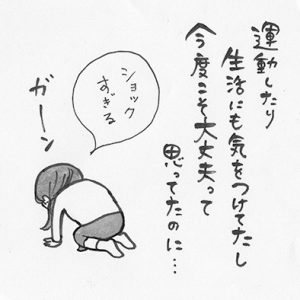 運動したり
生活にも気をつけてたし
今度こそ大丈夫って
思ってたのに…
ショック
すぎる
ガーン